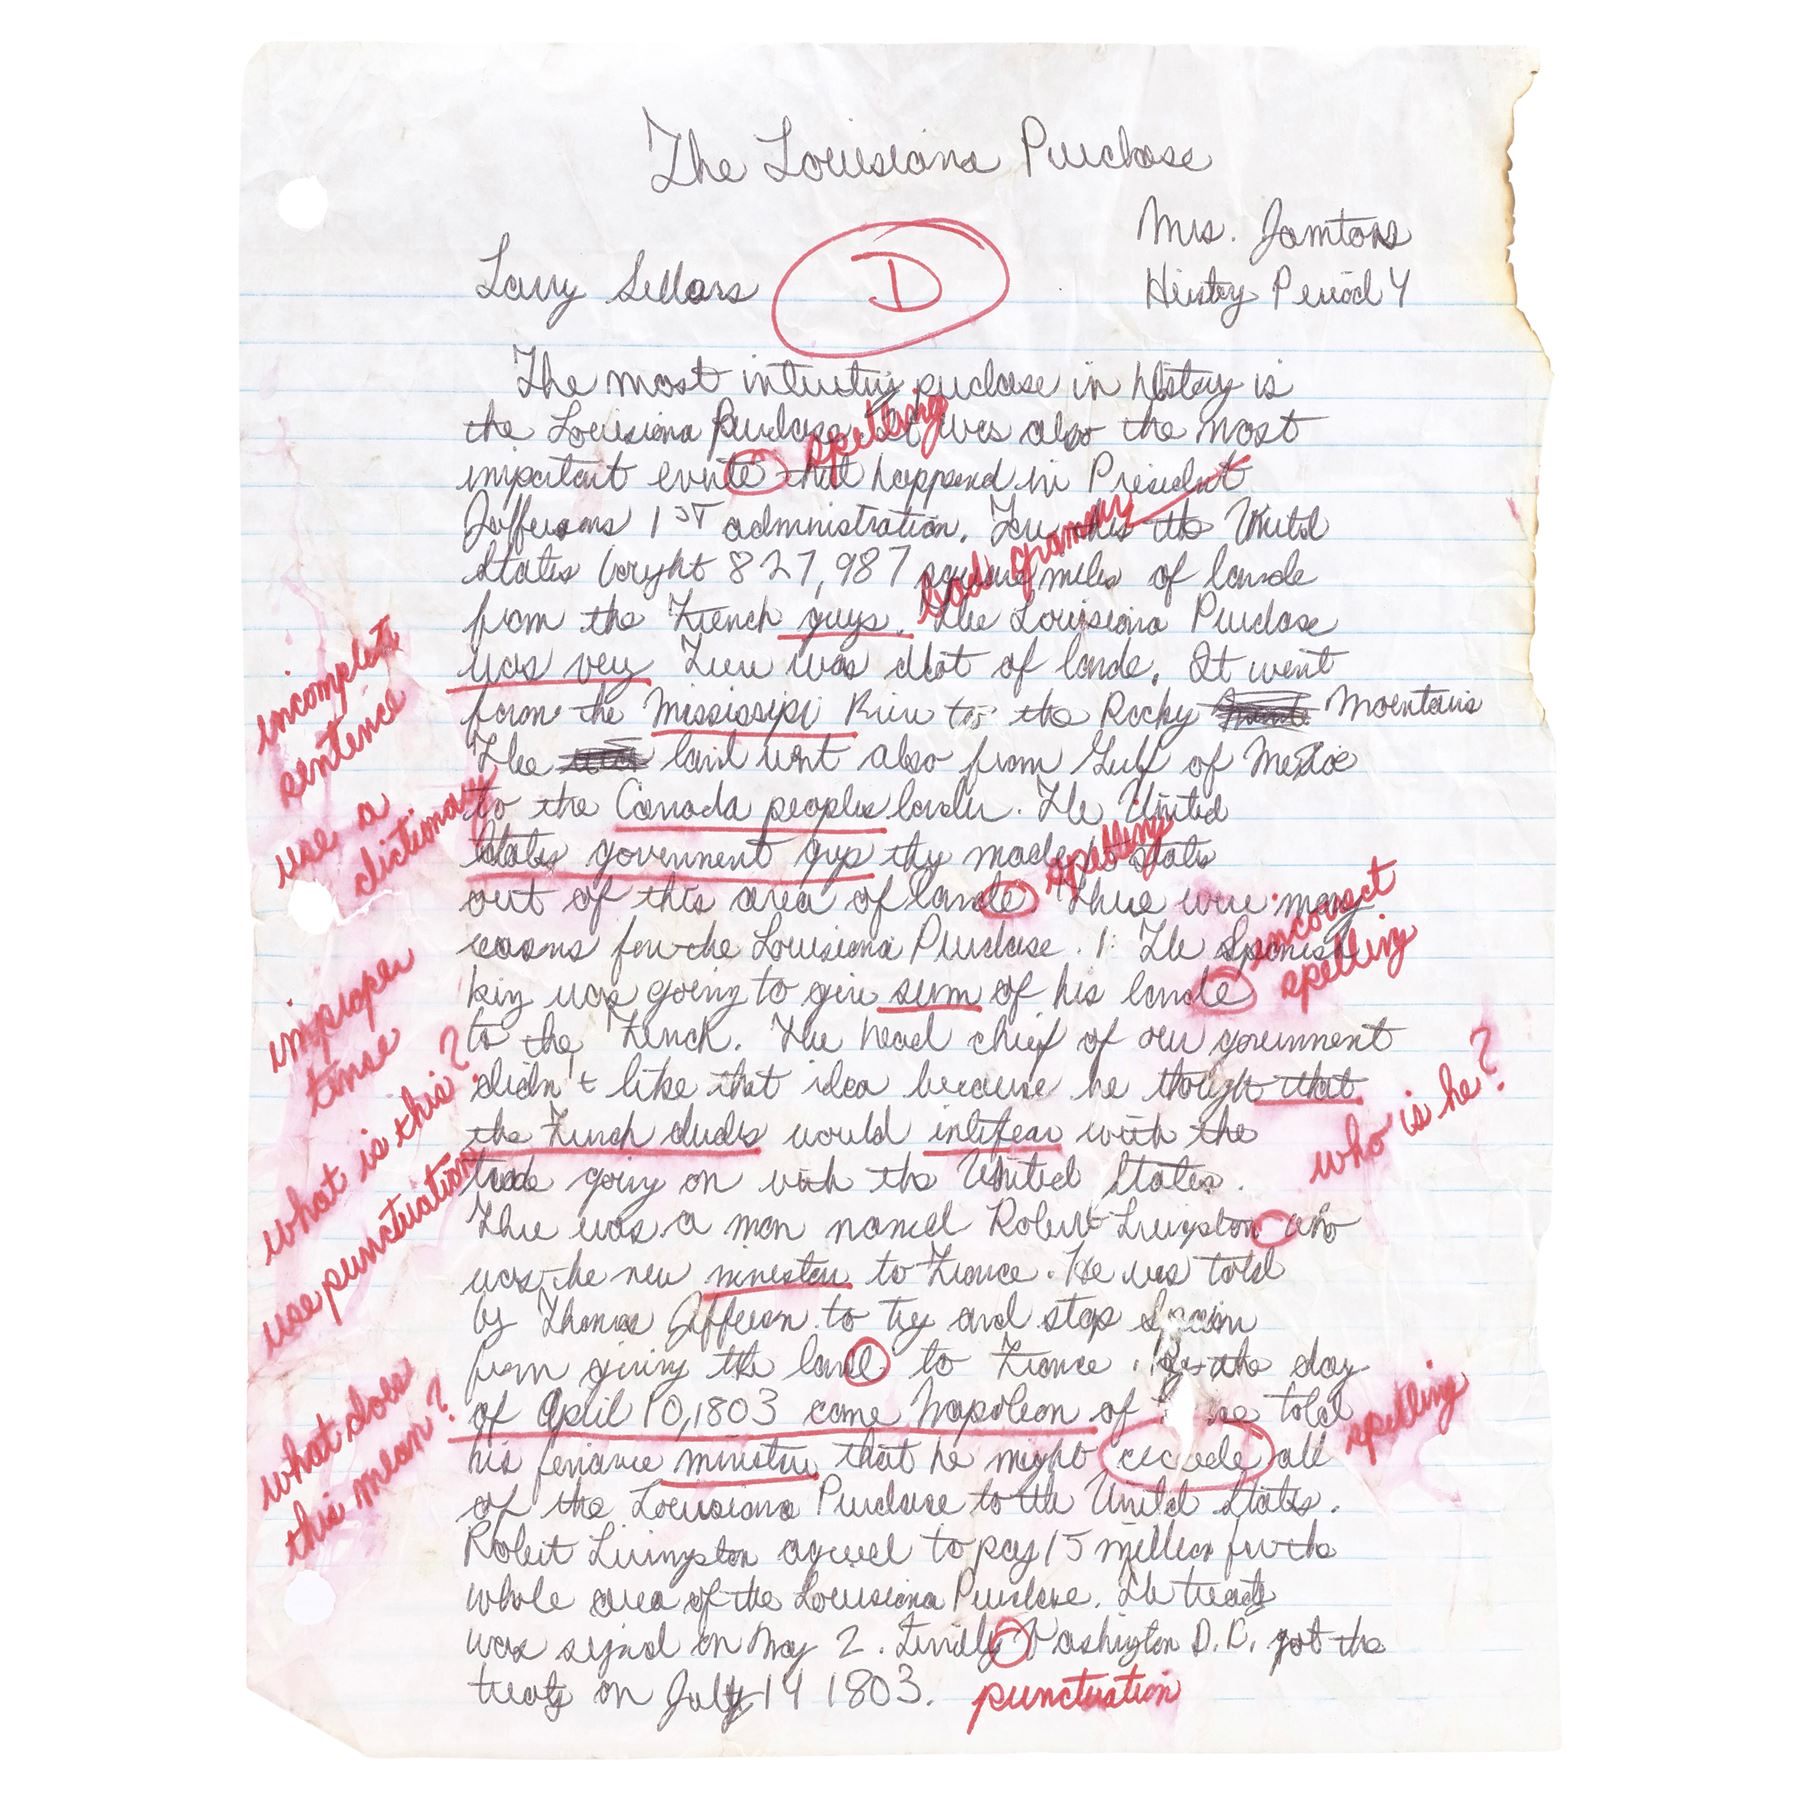 The Louisiana Purchase
Mrs. Jamtoss
Larry Sellars
D
History Period 4
The most purchase in history is
the Louisiana Purchase. It was also the most
spelling
important evnte that happend in President
Jeffersons 1ST administration. the United
bad grammer
States boryht 827,987 square miles of lande
from the French guys. The Louisiana Purchase
was very There was alot of lande. It went
incomplete
sentence
from the Mississipi River to the Rocky Mountains
The land went also from Gulf of Mexico
use a
dictionary
to the Canada peoples lander. The United
States government guys thy made states
spelling
out of this area of lande There were many
incorrect
spelling
reasons for the Louisiana Purchase. 1. The Spanish
king was going to give sum of his lande
improper
tense
to the French. The head chief of our government
didn't like that idea because he though that
what is this?
who is he?
the French dudes would intifear with the
trade going on with the United States.
use punctuation
There was a man named Robert Livingston who
was the new minester to France. He was told
by Thomas Jefferson to try and stop Spain
from giving the lande to France. the day
of April 10, 1803 came Napoleon of he told
spelling
what does
this mean?
his finance minister that he might all
of the Louisiana Purchase to the United States.
Robert Livingston agreed to pay 15 million for the
whole area of the Louisiana Purchase. The treaty
was signd on May 2. Washington D.C. got the
treaty on July 14 1803.
punctuation